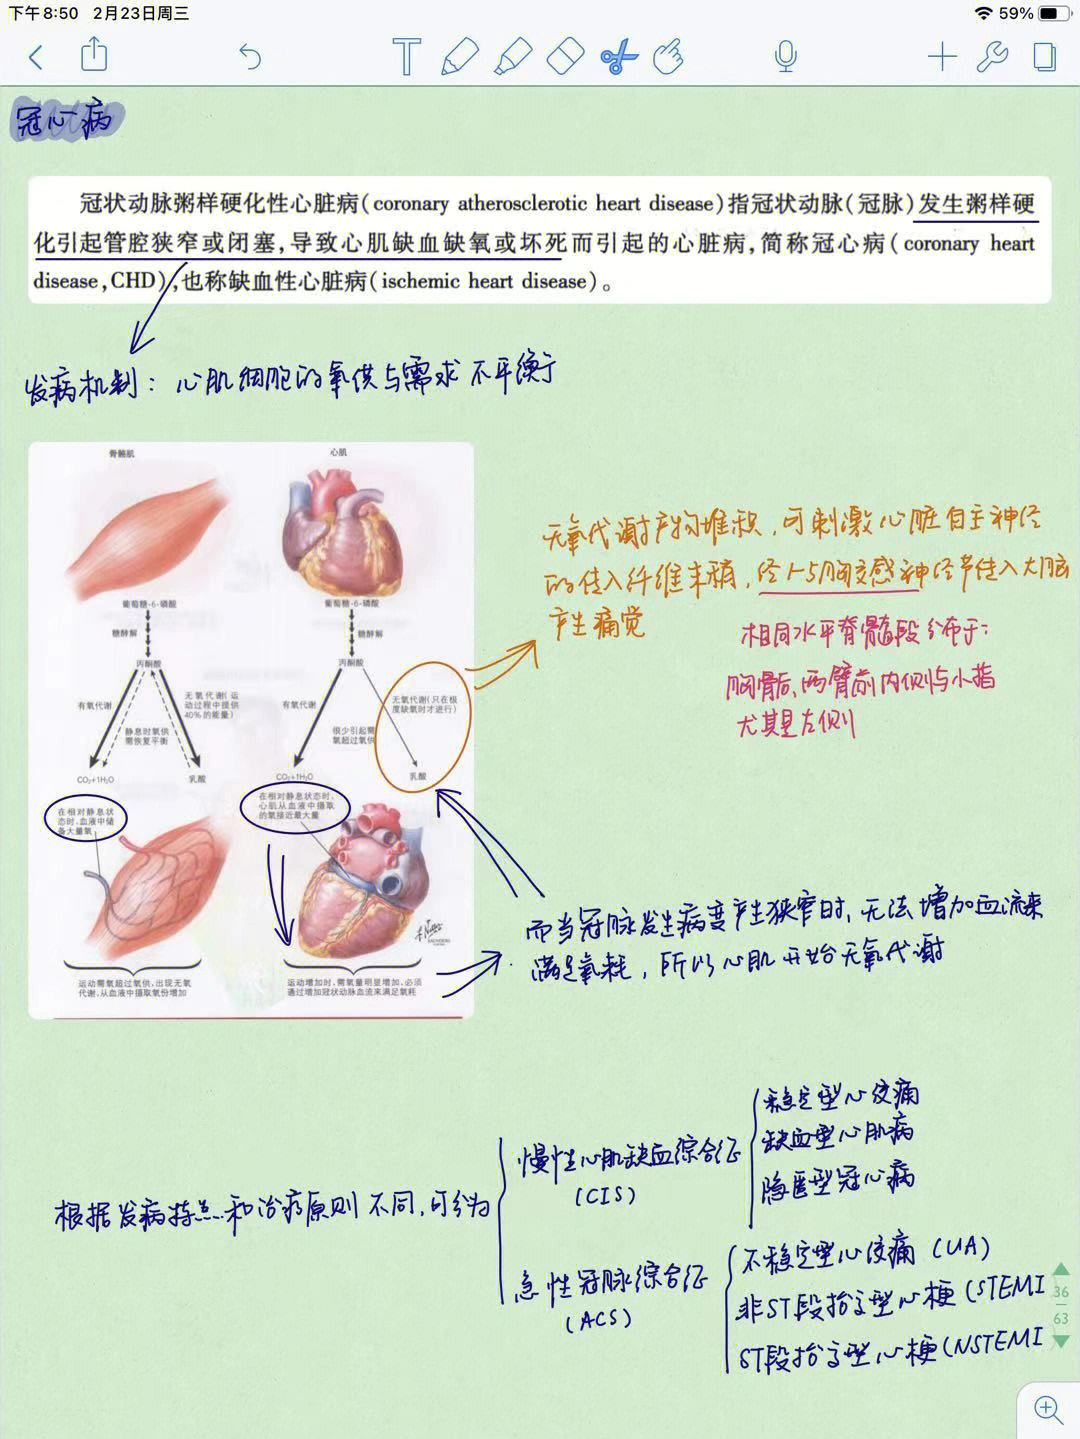 下午8:50 2月23日周三
59%
冠心病
冠状动脉粥样硬化性心脏病(coronary atherosclerotic heart disease)指冠状动脉(冠脉)发生粥样硬
化引起管腔狭窄或闭塞,导致心肌缺血缺氧或坏死而引起的心脏病,简称冠心病(coronary heart
disease,CHD),也称缺血性心脏病(ischemic heart disease)。
发病机制：心肌细胞的氧供与需求不平衡
骨骼肌
心肌
葡萄糖-6-磷酸
葡萄糖-6-磷酸
糖酵解
糖酵解
丙酮酸
丙酮酸
有氧代谢
无氧代谢(运
动过程中提供
40%的能量)
静息时氧供
需恢复平衡
有氧代谢
无氧代谢(只在极
度缺氧时才进行)
很少引起需
氧超过氧供
CO₂+1H₂O
乳酸
CO₂+1H₂O
乳酸
在相对静息状
态时,血液中储
备大量氧
在相对静息状态时,
心肌从血液中摄取
的氧接近最大量
运动需氧超过氧供,出现无氧
代谢,从血液中摄取氧份增加
运动增加时,需氧量明显增加,必须
通过增加冠状动脉血流来满足氧耗
无氧代谢产物堆积,可刺激心脏自主神经
的传入纤维末稍,经1-5胸交感神经节传入大脑
产生痛觉
相同水平脊髓段分布于:
胸骨后、两臂前内侧与小指
尤其是左侧
而当冠脉发生病变产生狭窄时,无法增加血流来
满足氧耗,所以心肌开始无氧代谢
根据发病特点和治疗原则不同,可分为
慢性心肌缺血综合征
(CIS)
稳定型心绞痛
缺血型心肌病
隐匿型冠心病
急性冠脉综合征
(ACS)
不稳定型心绞痛(UA)
非ST段抬高型心梗(STEMI
ST段抬高型心梗(NSTEMI
36
63